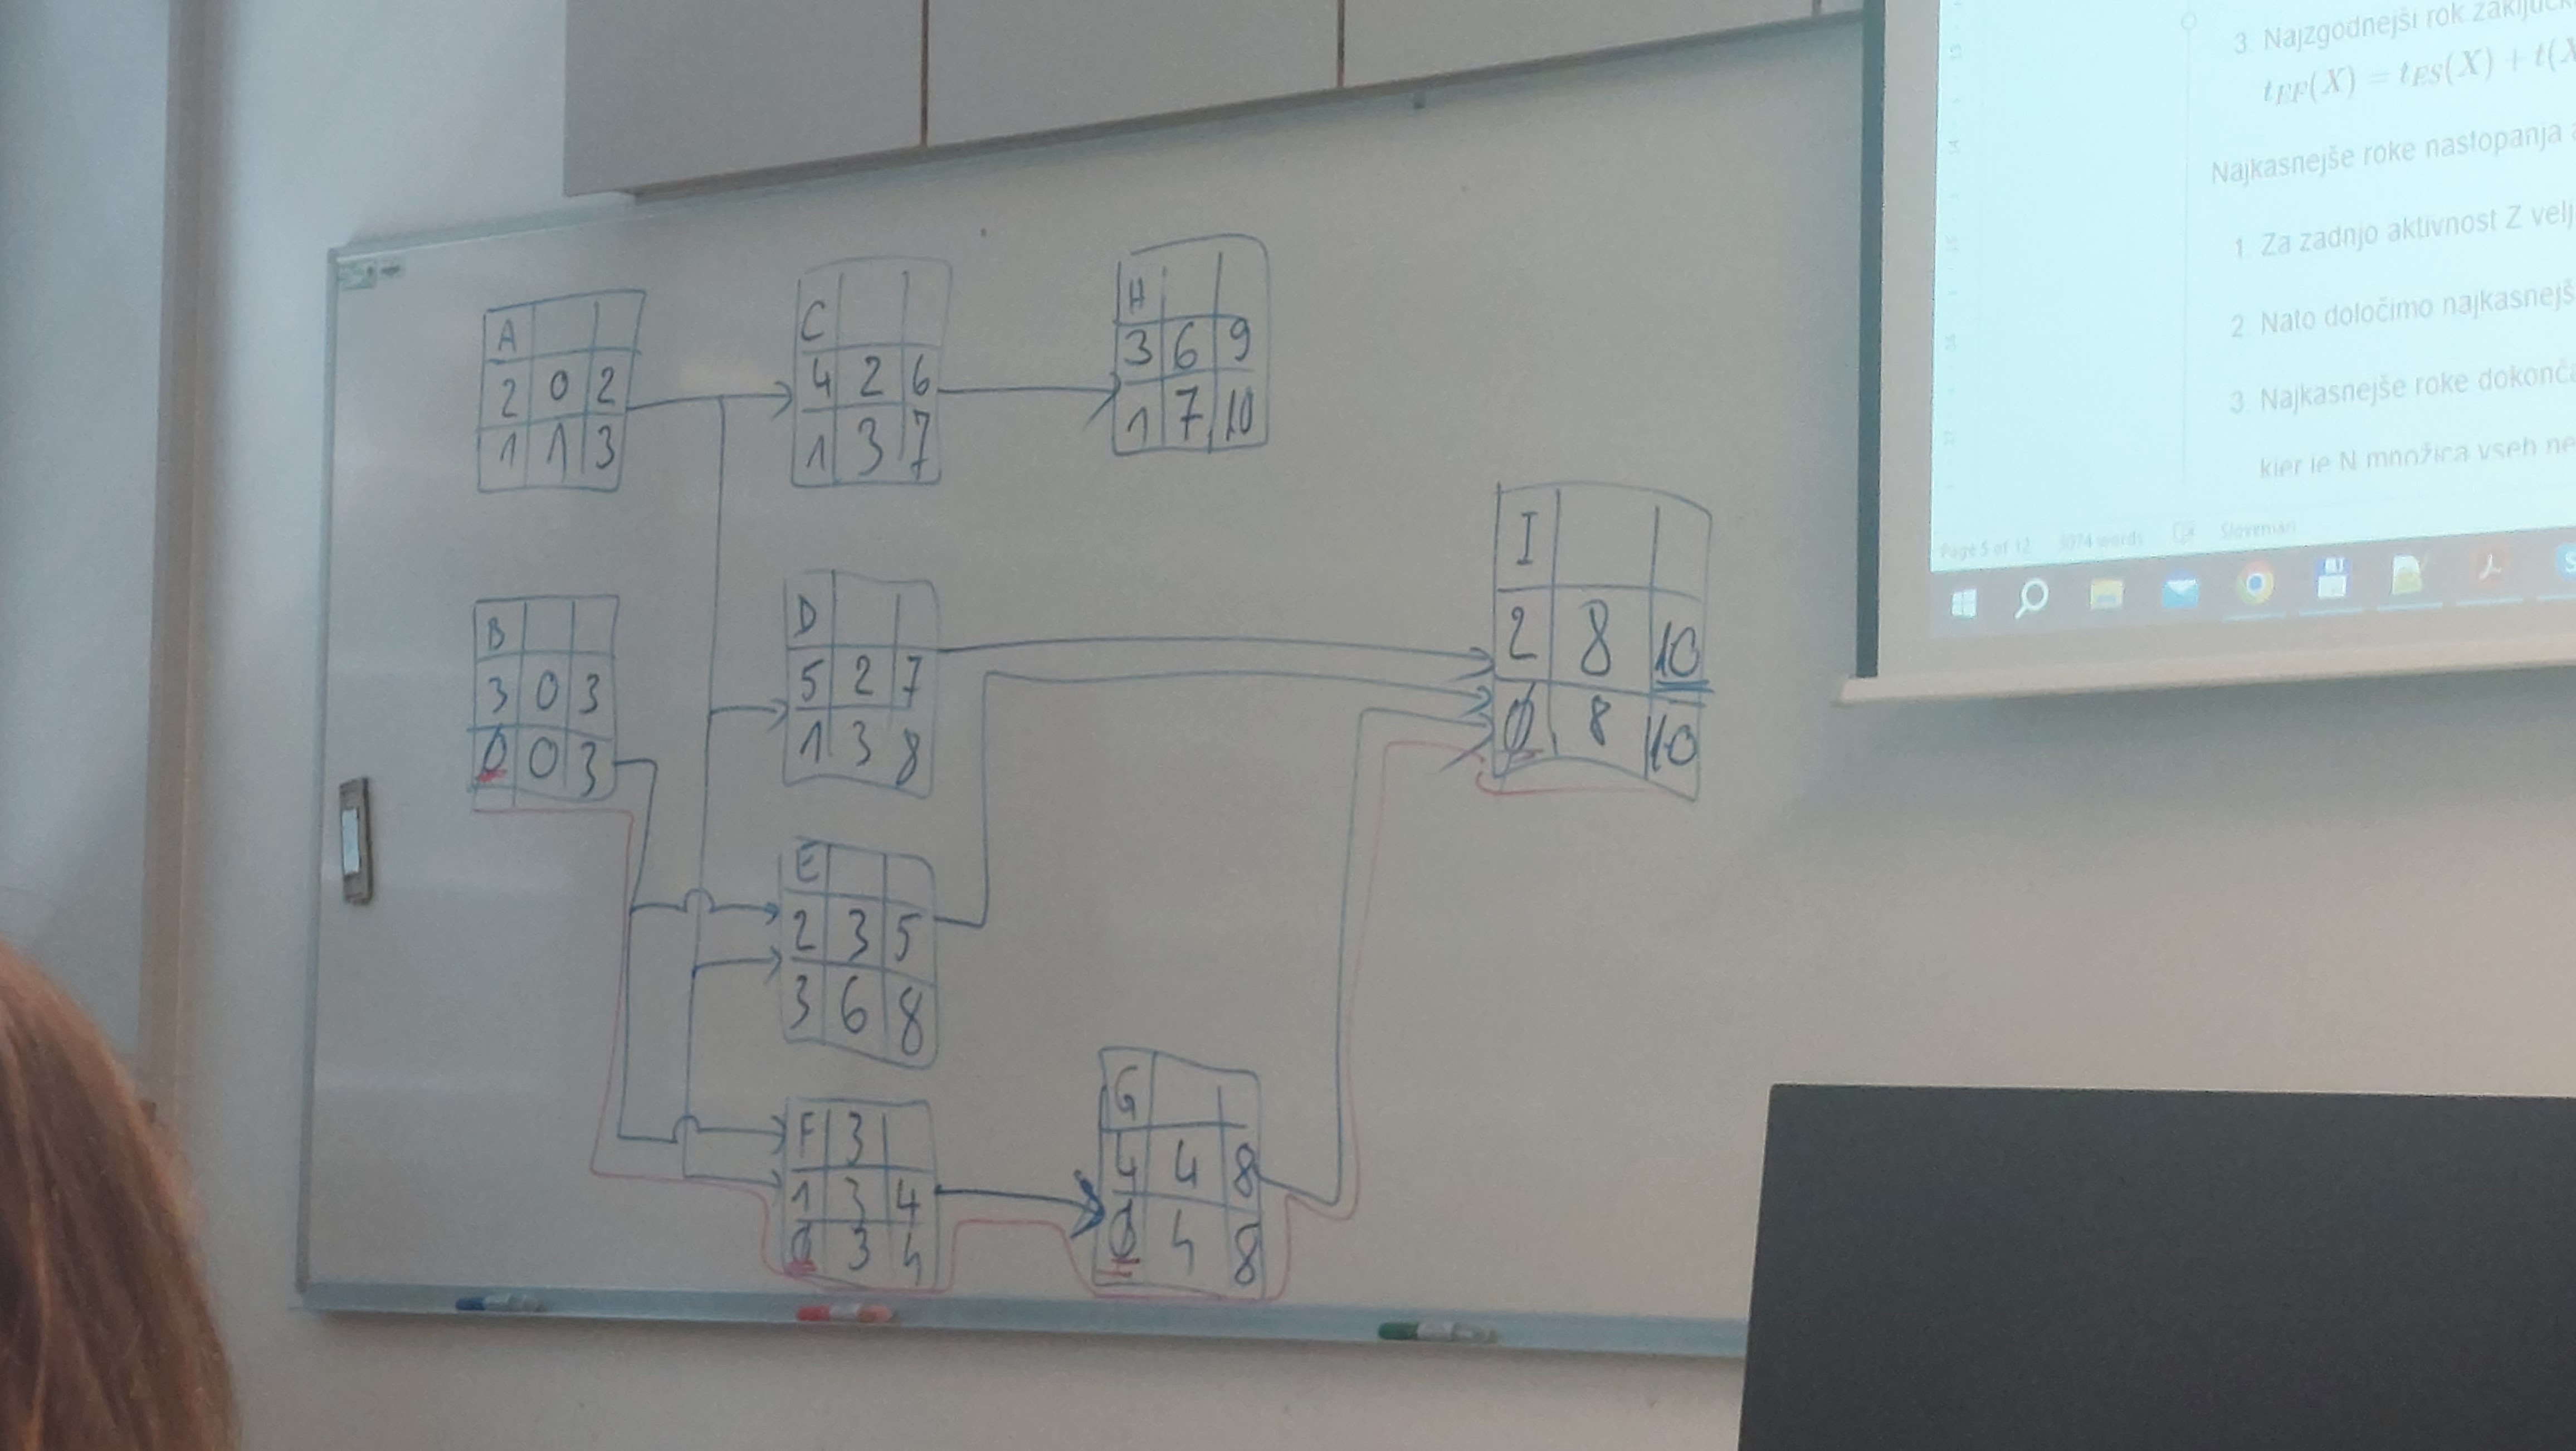 A
2 0 2
1 1 3
C
4 2 6
1 3 7
H
3 6 9
1 7 10
B
3 0 3
0 0 3
D
5 2 7
1 3 8
I
2 8 10
0 8 10
E
2 3 5
3 6 8
F 3
1 3 4
0 3 4
G
4 4 8
0 4 8
3 Najzgodnejši rok zaključk
tEF(X) = tES(X) + t(X
Najkasnejše roke nastopanja a
1. Za zadnjo aktivnost Z velj
2 Nato določimo najkasnejš
3 Najkasnejše roke dokonča
kjer je N množica vseh ne
Page 5 of 12 3074 words Slovenian